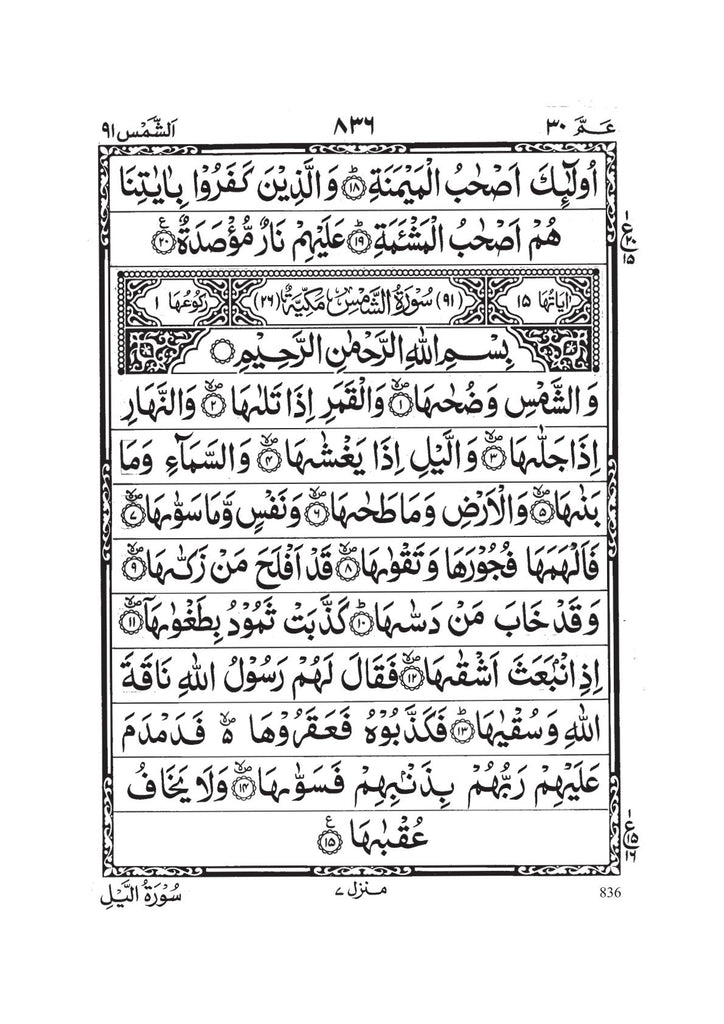 عـمّ ٣٠ ٨٣٦ اَلشَّمْس ٩١
اُولٰٓئِكَ اَصْحٰبُ الْمَيْمَنَةِ ۞ؕ١٨ وَالَّذِيْنَ كَفَرُوْا بِاٰيٰتِنَا
هُمْ اَصْحٰبُ الْمَشْـَٔمَةِ ؕ١٩ عَلَيْهِمْ نَارٌ مُّؤْصَدَةٌ ۧ٢٠
ع ٢٠ ١٥
اٰيَاتُهَا ١٥ (٩١) سُوْرَةُ الشَّمْسِ مَكِّيَّةٌ (٢٦) رُكُوْعُهَا ١
بِسْمِ اللّٰهِ الرَّحْمٰنِ الرَّحِيْمِ ۝
وَالشَّمْسِ وَضُحٰىهَا ۪ۙ١ وَالْقَمَرِ اِذَا تَلٰىهَا ۪ۙ٢ وَالنَّهَارِ
اِذَا جَلّٰىهَا ۪ۙ٣ وَالَّيْلِ اِذَا يَغْشٰىهَا ۪ۙ٤ وَالسَّمَآءِ وَمَا
بَنٰىهَا ۪ۙ٥ وَالْاَرْضِ وَمَا طَحٰىهَا ۪ۙ٦ وَنَفْسٍ وَّمَا سَوّٰىهَا ۪ۙ٧
فَاَلْهَمَهَا فُجُوْرَهَا وَتَقْوٰىهَا ۪ۙ٨ قَدْ اَفْلَحَ مَنْ زَكّٰىهَا ۪ۙ٩
وَقَدْ خَابَ مَنْ دَسّٰىهَا ؕ١٠ كَذَّبَتْ ثَمُوْدُ بِطَغْوٰىهَاۤ ۪ۙ١١
اِذِ انْۢبَعَثَ اَشْقٰىهَا ۪ۙ١٢ فَقَالَ لَهُمْ رَسُوْلُ اللّٰهِ نَاقَةَ
اللّٰهِ وَسُقْيٰهَا ؕ١٣ فَكَذَّبُوْهُ فَعَقَرُوْهَا ۪ۙ۵ فَدَمْدَمَ
عَلَيْهِمْ رَبُّهُمْ بِذَنْۢبِهِمْ فَسَوّٰىهَا ۪ۙ١٤ وَلَا يَخَافُ
عُقْبٰهَا ۧ١٥
ع ١٥ ١٦
سُوْرَةُ الَّيْلِ منزل ٧ 836